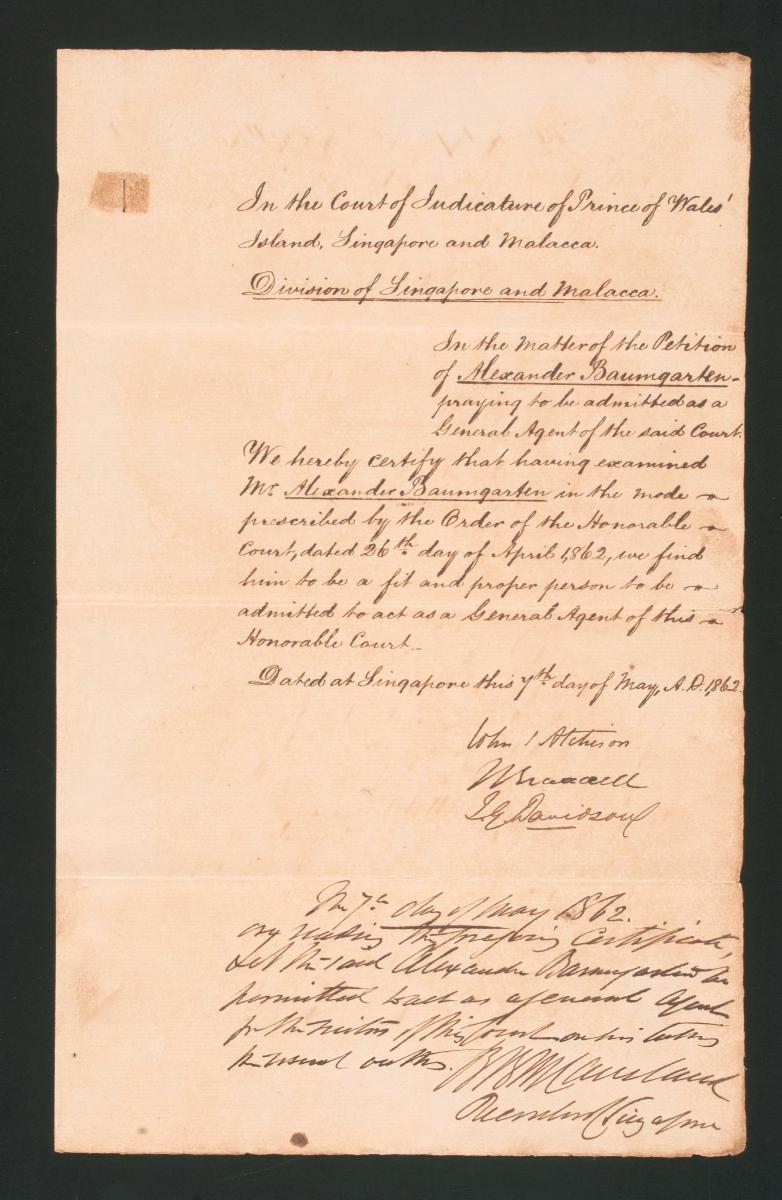 In the Court of Judicature of Prince of Wales'
Island, Singapore and Malacca.
Division of Singapore and Malacca.
In the Matter of the Petition
of Alexander Baumgarten
praying to be admitted as a
General Agent of the said Court.
We hereby certify that having examined
Mr Alexander Baumgarten in the mode
prescribed by the Order of the Honorable
Court, dated 26th day of April 1,862, we find
him to be a fit and proper person to be
admitted to act as a General Agent of this
Honorable Court.
Dated at Singapore this 7th day of May, A.D. 1,862
John Atchison
J.G. Davidson
The 7th day of May 1862.
on reading the foregoing Certificate,
Let the said Alexander Baumgarten be
permitted to act as a general Agent
for the Suitors of this Court on his taking
the usual oaths.
Recorder Singapore